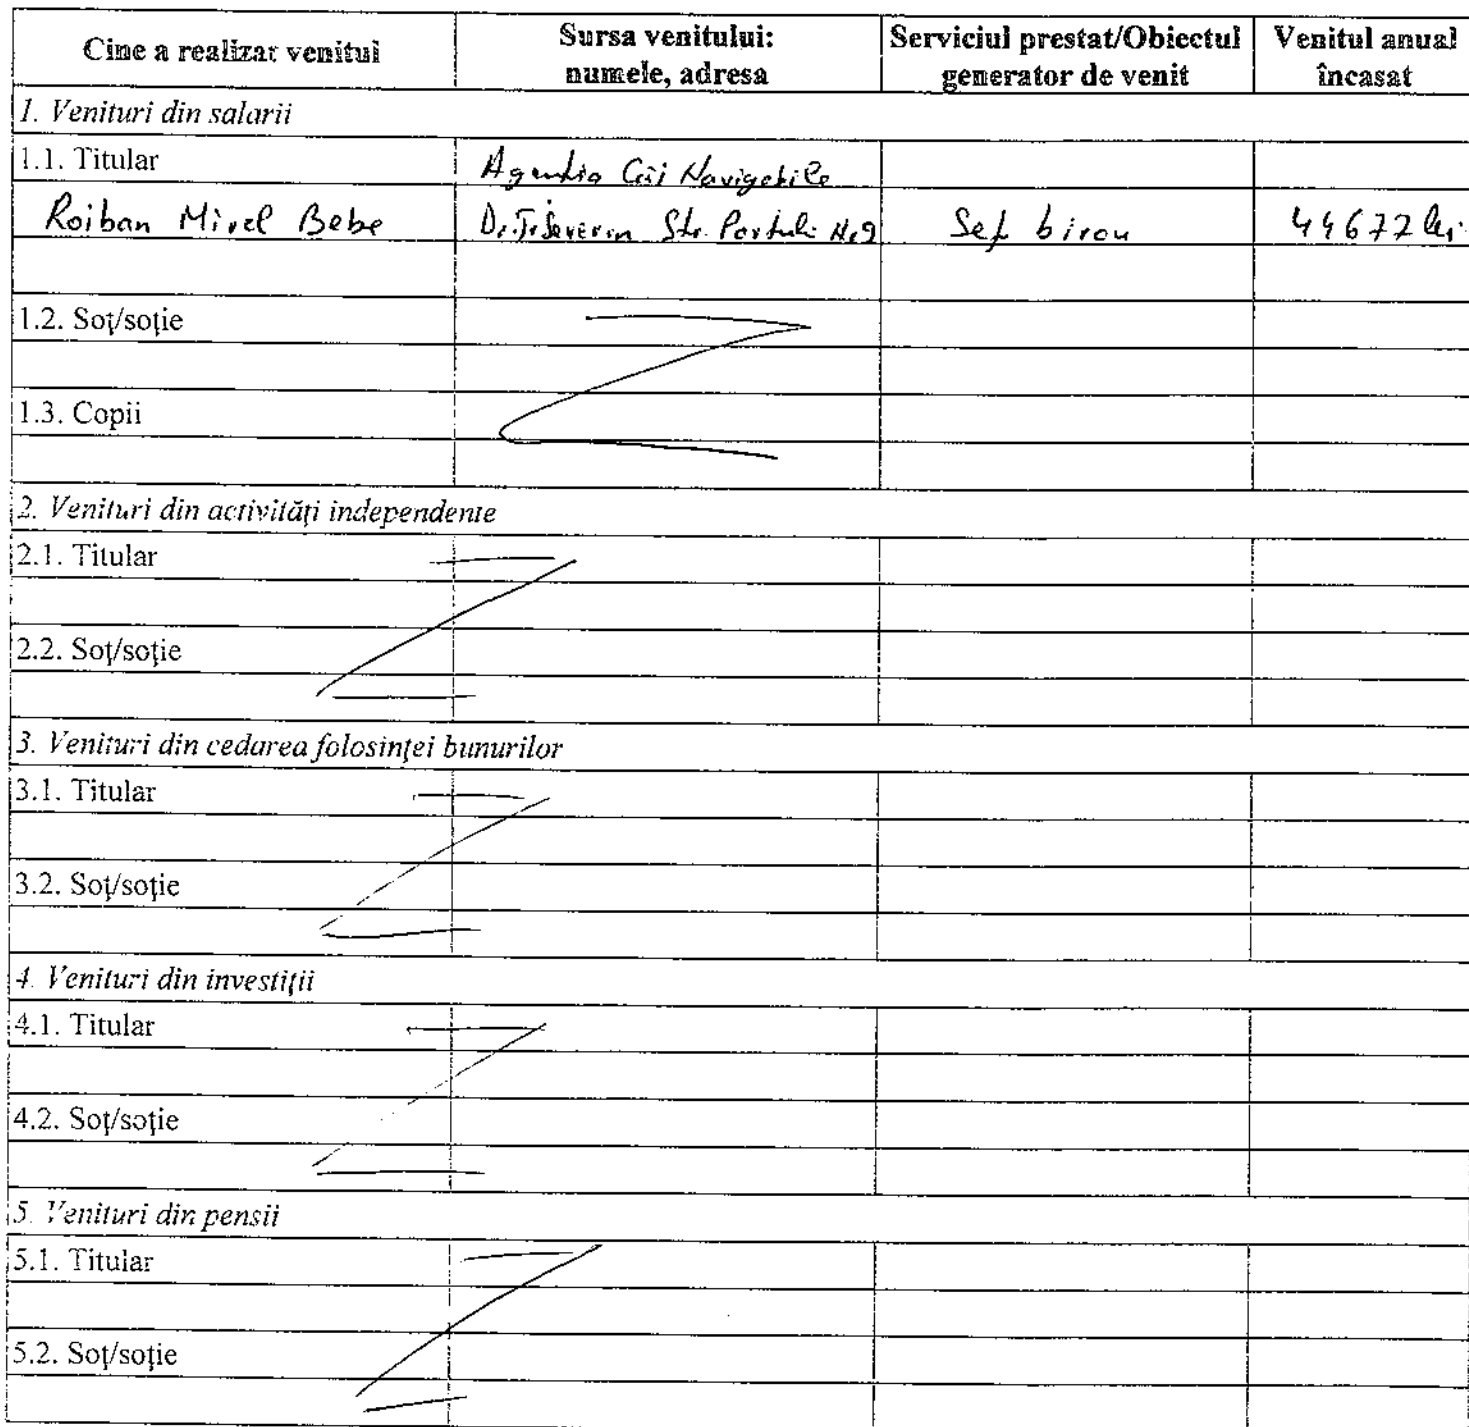 Cine a realizat venitul
Sursa venitului:
numele, adresa
Serviciul prestat/Obiectul
generator de venit
Venitul anual
încasat
1. Venituri din salarii
1.1. Titular
Agentia Căi Navigabile
Roiban Mirel Bebe
Dr. Tr. Severin Str. Portului Nr 9
Sef birou
44672 lei
1.2. Soţ/soţie
1.3. Copii
2. Venituri din activităţi independente
2.1. Titular
2.2. Soţ/soţie
3. Venituri din cedarea folosinţei bunurilor
3.1. Titular
3.2. Soţ/soţie
4. Venituri din investiţii
4.1. Titular
4.2. Soţ/soţie
5. Venituri din pensii
5.1. Titular
5.2. Soţ/soţie